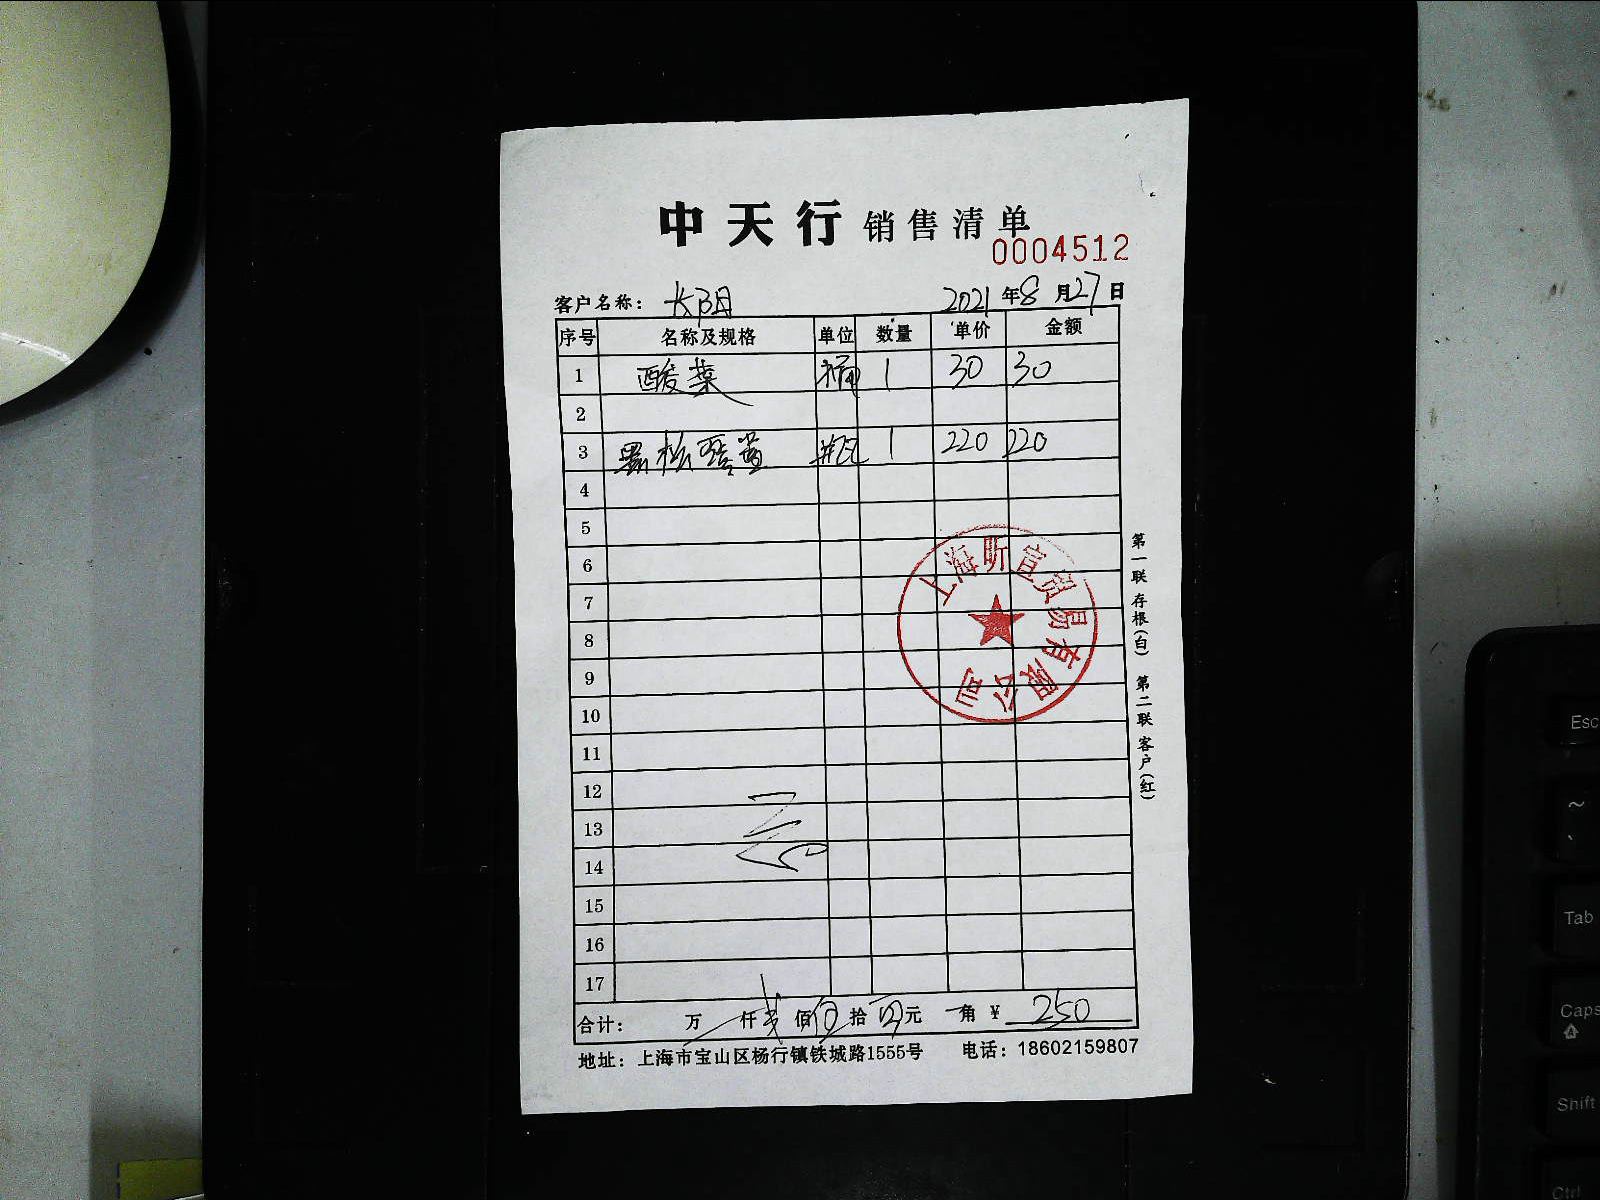 中天行 销售清单
0004512
客户名称： 长阳 2021年8月27日
序号 名称及规格 单位 数量 单价 金额
1 酸菜 桶 1 30 30
2
3 黑松露酱 瓶 1 220 220
4
5
6
7
8
9
10
11
12
13
14
15
16
17
上海昕宣贸易有限公司
第一联 存根(白) 第二联 客户(红)
合计： 万 仟 贰 佰 伍 拾 元 角 ¥ 250
地址：上海市宝山区杨行镇铁城路1555号 电话：18602159807
Esc
~
、
Tab
Caps
Shift
Ctrl